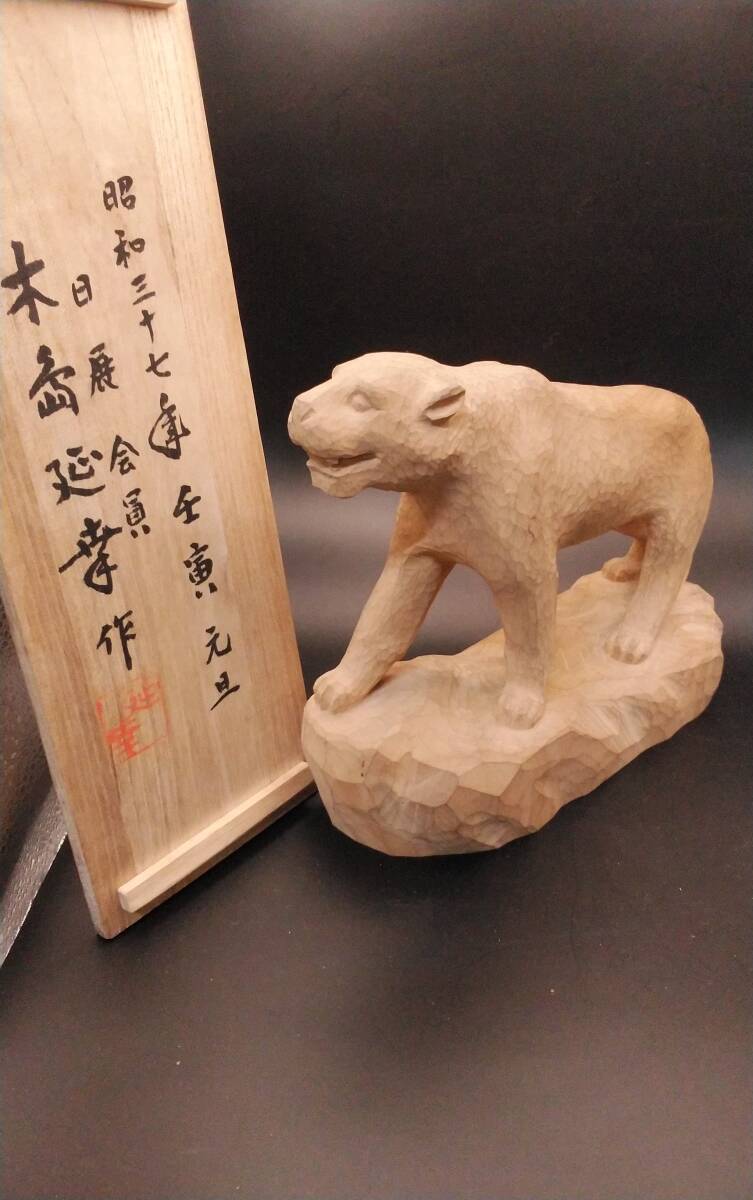 昭和三十七年壬寅元旦
日展会員
木島延幸作